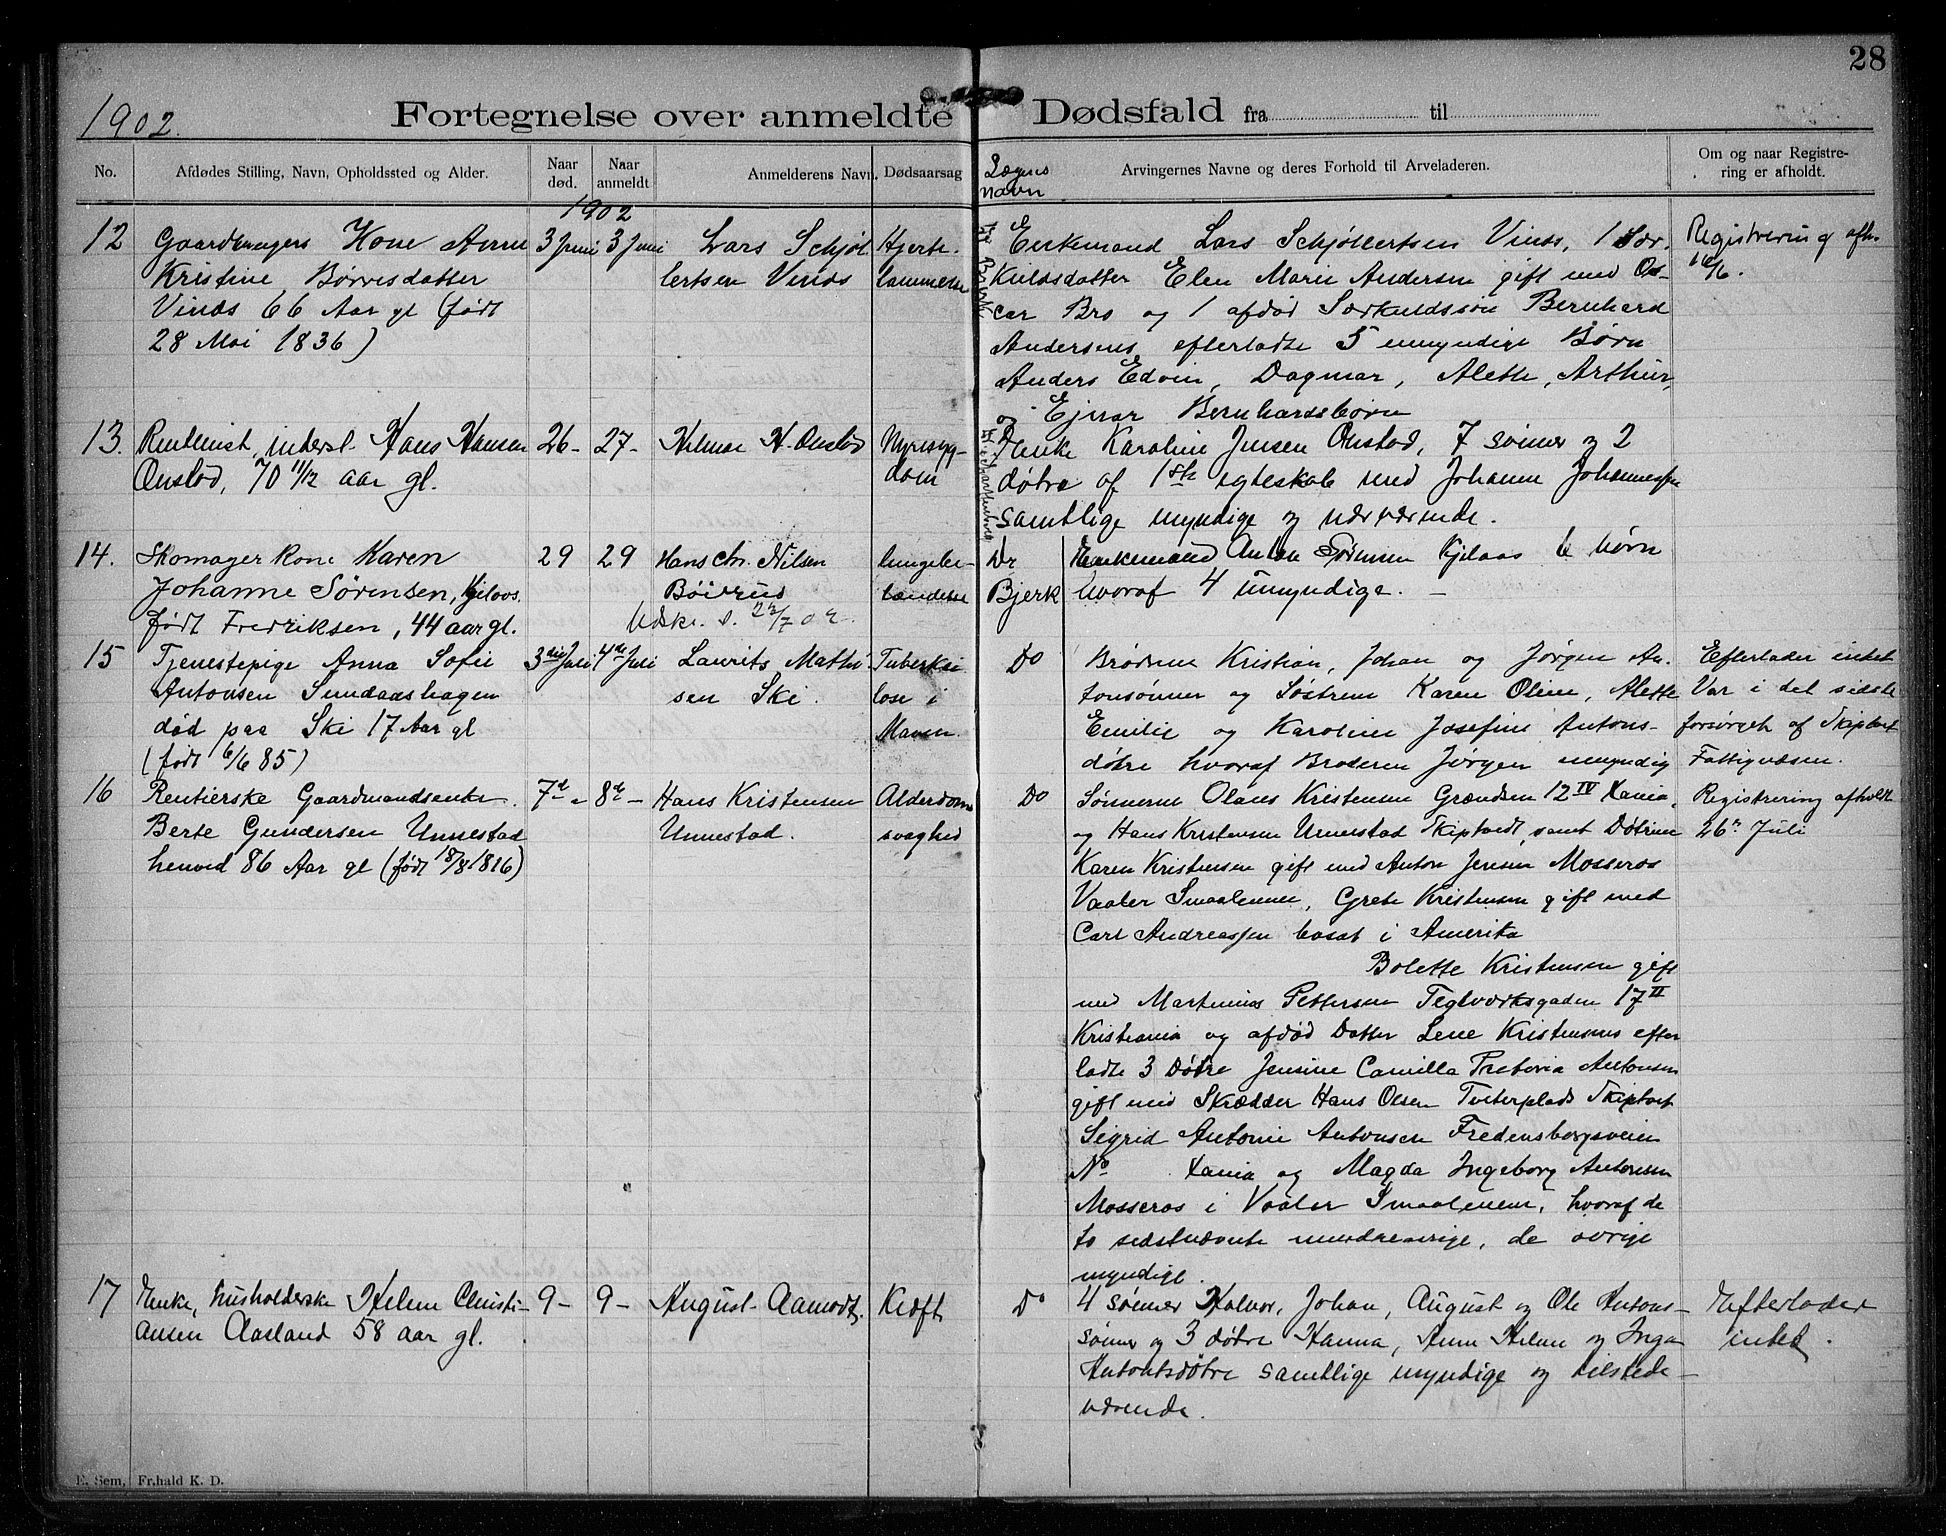 28
1902.
Fortegnelse over anmeldte Dødsfald fra til
No.
Afdødes Stilling, Navn, Opholdssted og Alder.
Naar død.
Naar anmeldt
Anmelderens Navn.
Dødsaarsag
Lægens navn
Arvingernes Navne og deres Forhold til Arveladeren.
Om og naar Registre-
ring er afholdt.
1902
12 Gaardbrugers Kone Anne
Kristine Børresdatter
Vinds 66 Aar gl (født
28 Mai 1836)
3 Juni
3 Juni
Lars Schjøl
lertsen Vinds
Hjerte-
lammelse
Enkemand Lars Schjøllertsen Vinds, 1 Sær-
kuldsdatter Elen Marie Andersen gift med Os-
car Bro og 1 afdød Særkuldssøn Bernhard
Andersens efterladte 5 umyndige Børn
Anders Edvin, Dagmar, Alette, Arthur,
og Ejnar Bernhardsbørn
Registrering afh.
13. Rentenist, inderst Hans Hansen
Onstad, 70 11/12 aar gl.
26-
27-
Hilmar H. Onstad
Nyresyg-
dom
Enke Karoline Jensen Onstad, 7 sønner og 2
døtre af 1ste egteskab med Johanne Johannessen
samtlige myndige og nærværende.
14. Skomager kone Karen
Johanne Sørensen, Kjelaas.
født Fredriksen, 44 aar gl.
29
29
Hans Chr. Nilsen
Bøierud
Udskr. d. 22/7 02.
lungebe-
tændelse
Dr
Bjerk
Enkemand Anton Sørensen Kjelaas 6 børn
hvoraf 4 umyndige. —
15 Tjenestepige Anna Sofie
Antonsen Sundaashagen
død paa Ski 17 Aar gl
(født 6/6 85)
3die Juli
4de Juli
Laurits Mathi
sen Ski.
Tuberku
lose i
Maven.
Do
Brødrene Kristian, Johan og Jørgen An-
tonsønner og Søstrene Karen Oline, Alette
Emilie og Karoline Josefine Antons-
døtre hvoraf Broderen Jørgen umyndig
Efterlader intet
Var i det sidste
forsørget af Skiptvet
Fattigvæsen.
16 Rentierske Gaardmandsenke
Berte Gundersen Unnestad
henved 86 Aar gl (født 18/8 1816)
7de -
8de -
Hans Kristensen
Unnestad.
Alderdoms
svaghed
Do
Sønnerne Olaus Kristensen Grændsen 12 IV Xania,
og Hans Kristensen Unnestad Skiptvedt, samt Døtrene
Karen Kristensen gift med Anton Jensen Mosseros
Vaaler Smaalenene, Grete Kristensen gift med
Carl Andreassen bosat i Amerika
Bolette Kristensen gift
med Martinius Pettersen Teglværksgaden 17 II
Kristiania og afdød Datter Lene Kristensens efter
ladte 3 Døtre Jensine Camilla Pretoria Antonsen
gift med Skrædder Hans Olsen Tveterplads Skiptvet
Sigrid Antonie Antonsen Fredensborgsveien
No Xania og Magda Ingeborg Antonsen
Mosseros i Vaaler Smaalenene, hvoraf de
to sidstnævnte mindreaarige, de øvrige
myndige.
Registrering afholdt
26de Juli
17 Enke, husholderske Helene Christi-
ansen Aasland 58 aar gl.
9-
9-
August Aamodt.
Kræft
Do
4 sønner Halvor, Johan, August og Ole Antons-
sønner og 3 døtre Hanna, Anne Helene og Inga
Antonsdøtre samtlige myndige og tilstede-
værende.
Efterlader
intet.
E. Sem, Fr.hald K. D.